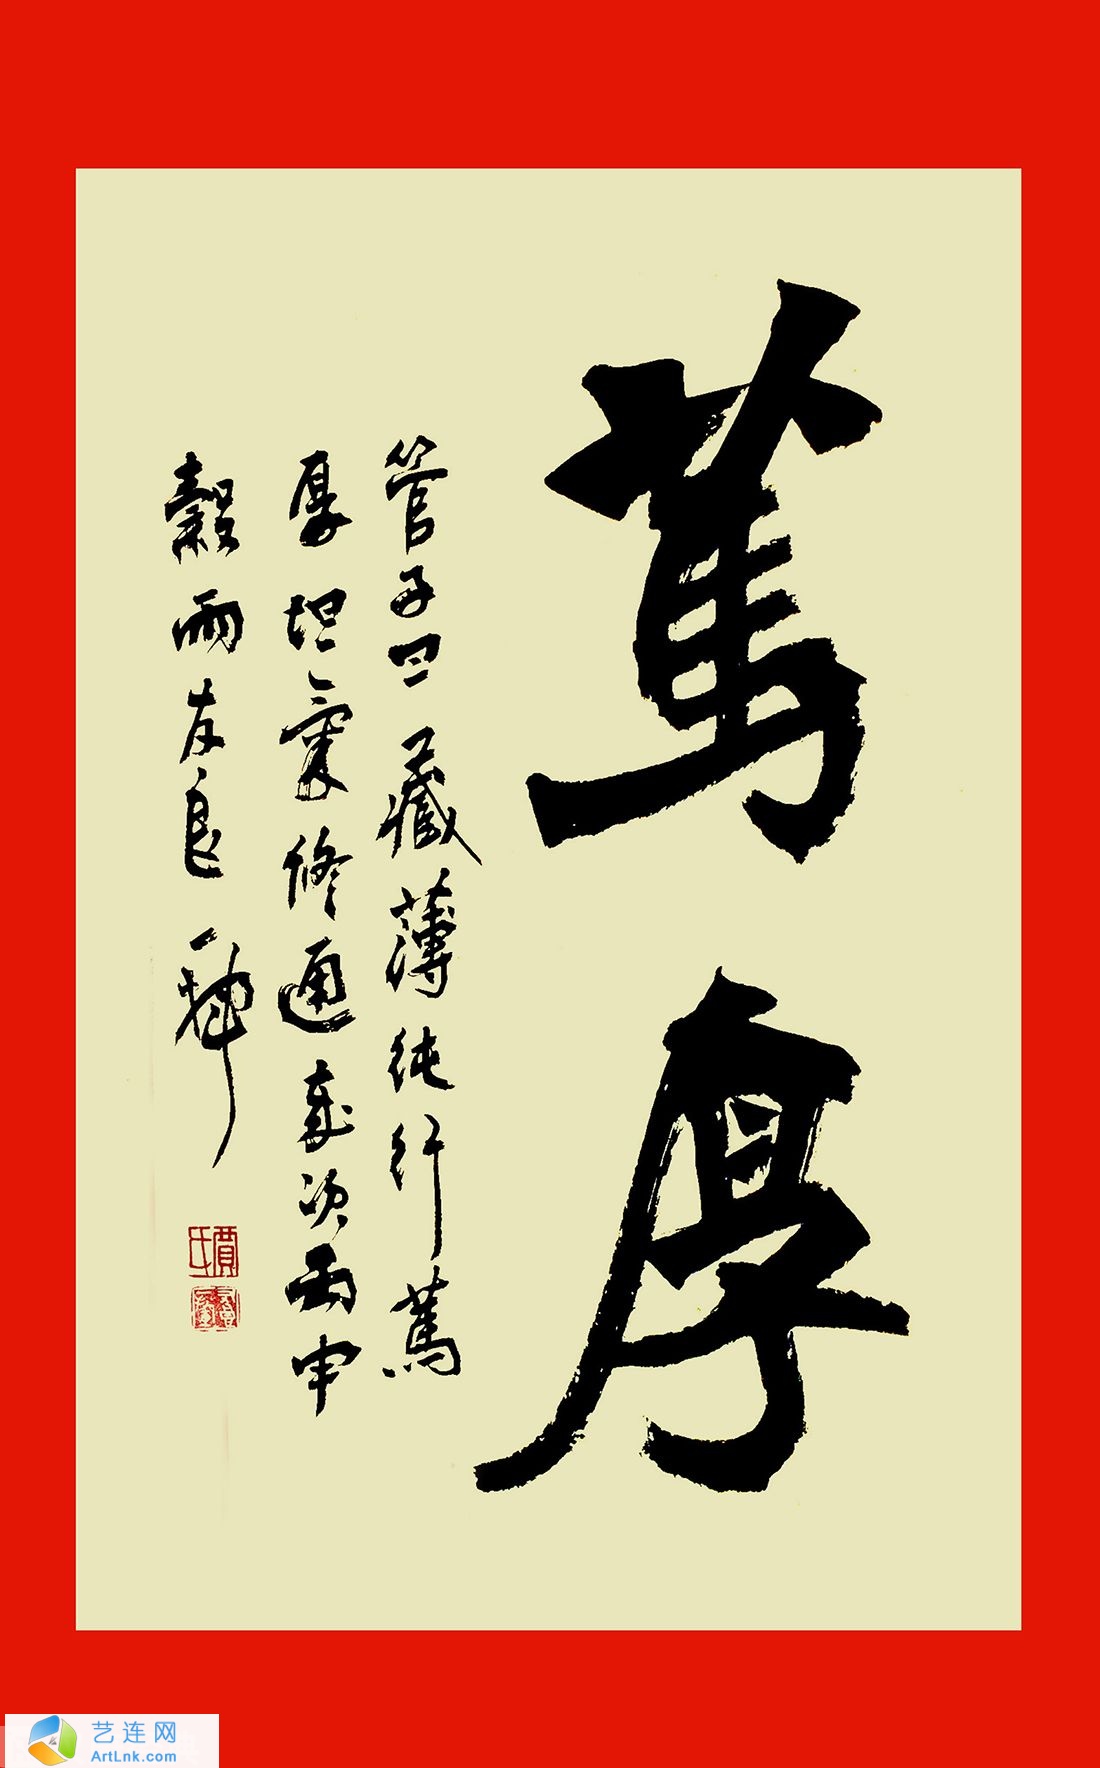 篤厚
管子曰藏薄純行篤
厚坦氣修通歲次丙申
穀雨友良
賈氏
艺连网
ArtLnk.com